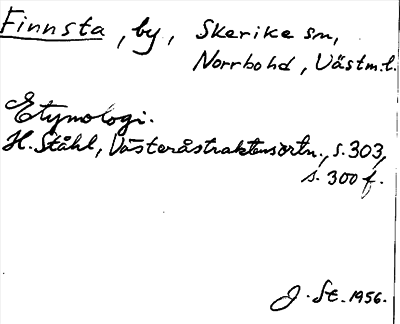 Finnsta, by, Skerike sn,
Norrbo hd, Västm.l.
Etymologi.
H. Ståhl, Västeråstraktens ortn., s. 303,
s. 300 f.
J. St. 1956.